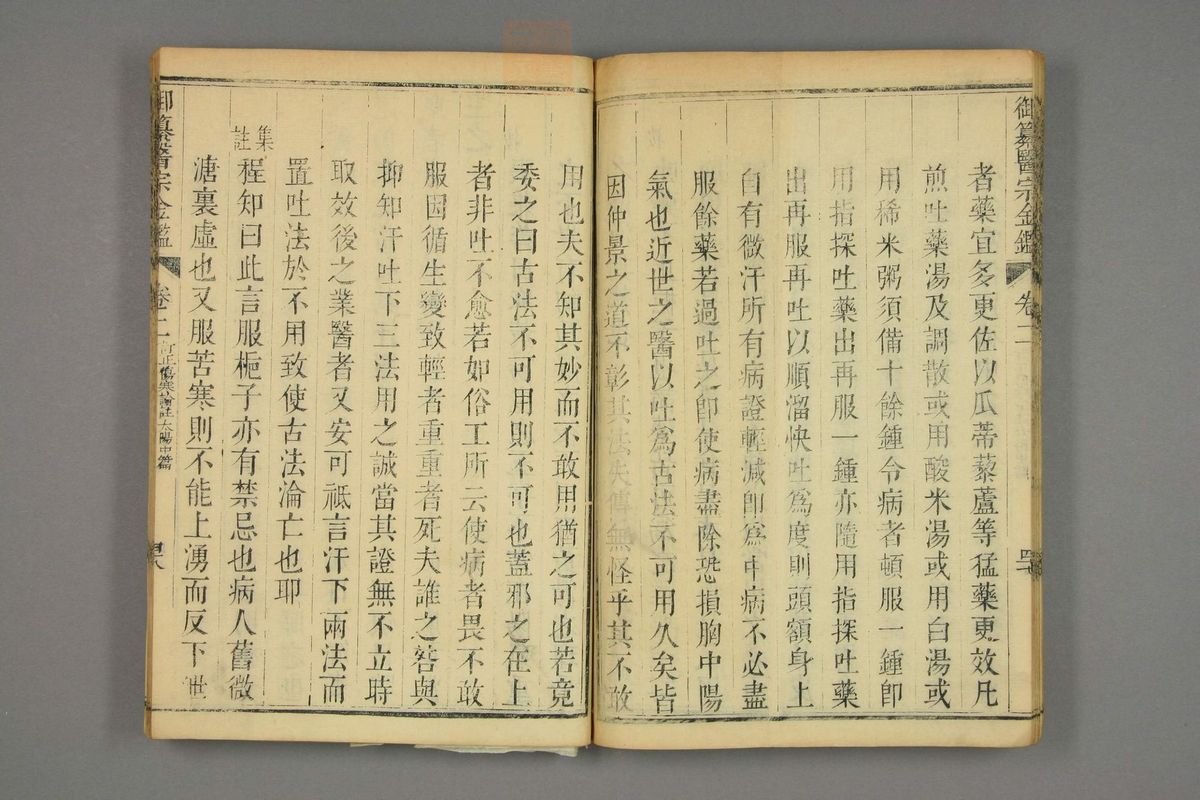 御纂醫宗金鑑 卷二
者藥宜多更佐以瓜蒂藜蘆等猛藥更效凡
煎吐藥湯及調散或用酸米湯或用白湯或
用稀米粥須備十餘鍾令病者頓服一鍾卽
用指探吐藥出再服一鍾亦隨用指探吐藥
出再服再吐以順溜快吐爲度則頭額身上
自有微汗所有病證輕減卽爲中病不必盡
服餘藥若過吐之卽使病盡除恐損胸中陽
氣也近世之醫以吐爲古法不可用久矣皆
因仲景之道不彰其法失傳無怪乎其不敢
用也夫不知其妙而不敢用猶之可也若竟
委之曰古法不可用則不可也蓋邪之在上
者非吐不愈若如俗工所云使病者畏不敢
服因循生變致輕者重重者死夫誰之咎與
抑知汗吐下三法用之誠當其證無不立時
取效後之業醫者又安可祗言汗下兩法而
置吐法於不用致使古法淪亡也耶
集註程知曰此言服梔子亦有禁忌也病人舊微
溏裏虛也又服苦寒則不能上湧而反下泄
御纂醫宗金鑑 卷二 訂正傷寒論註 太陽中篇